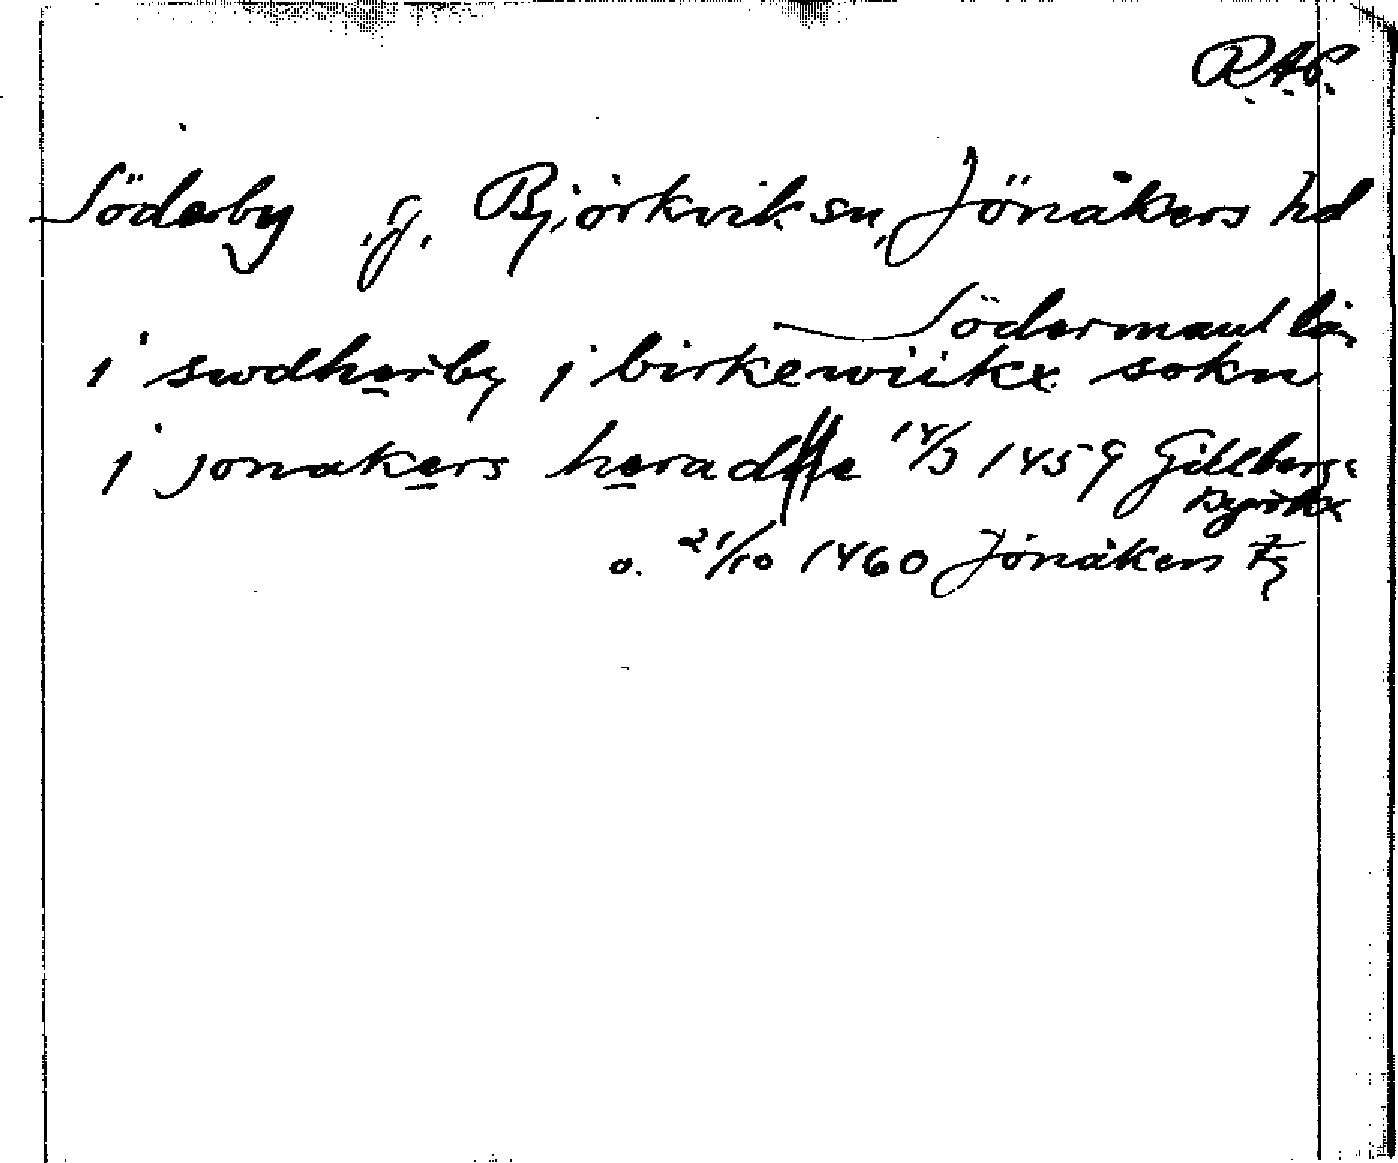 R.A.P.
Söderby, g. Björkvik sn, Jönåkers hd
Södermanl län
i swdherby j birkewiikx sokn
j jonakers heradhe 14/3 1459 Gillberga
o. 21/10 1460 Jönåkers